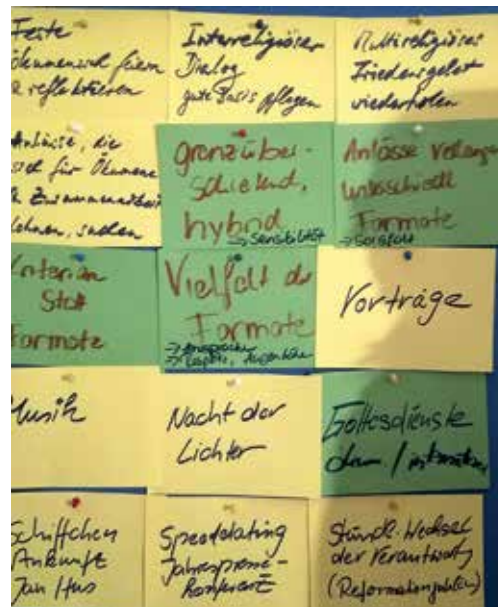 Feste
ökumenisch feiern
reflektieren
Interreligiöser
Dialog
gute Basis pflegen
Multireligiöses
Friedensgebet
wiederholen
Anlässe, die
sich für Ökumene
Zusammenarbeit
lohnen, suchen
grenzüber-
schreitend,
hybrid
→ Sensibilität
Anlässe verlangen
unterschiedl.
Formate
→ Sorgfalt
Kriterien
Statt
Formate
Vielfalt der
Formate
→ Ansprache
→ Augenhöhe
Vorträge
Musik
Nacht der
Lichter
Gottesdienste
Schiffchen
Ankunft
Jan Hus
Speeddating
Jahrespresse-
konferenz
Stündl. Wechsel
der Verantwort.